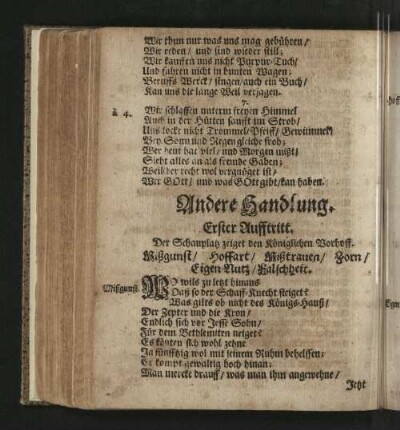 Wir thun nur was uns mag gebühren/
Wir reden/ und sind wieder still;
Wir kauffen uns nicht Purpur-Tuch/
Und fahren nicht in bunten Wagen:
Beruffs Werck/ singen/ auch ein Buch/
Kan uns die lange Weil verjagen.
7.
à 4. Wir schlaffen unterm freyen Himmel
Auch in der Hütten sanfft im Stroh/
Uns lockt nicht Trommel/ Pfeiff/ Getümmel
Bey Sonn und Regen gleiche froh;
Wer heut hat viel/ und Morgen mißt/
Sieht alles an als fremde Gaben;
Weil der recht wol vergnüget ist/
Wer GOtt/ und was GOtt gibt/ kan haben.
Andere Handlung.
Erster Aufftritt.
Der Schauplatz zeiget den Königlichen Vorhoff.
Mißgunst/ Hoffart/ Mißtrauen/ Zorn/
Eigen-Nutz/ Falschheit.
Mißgunst. WO wils zu letzt hinaus
Daß so der Schaff-Knecht steiget?
Was gilts ob nicht des Königs-Hauß/
Der Zepter und die Kron/
Endlich sich vor Jesse Sohn/
Für dem Bethlemiten neiget?
Es könten sich wohl zehne
Ja fünfftzig wol mit seinem Ruhm behelffen;
Er kompt gewaltig hoch hinan;
Man mercke drauff/ was man ihm angewehne/
Jetzt